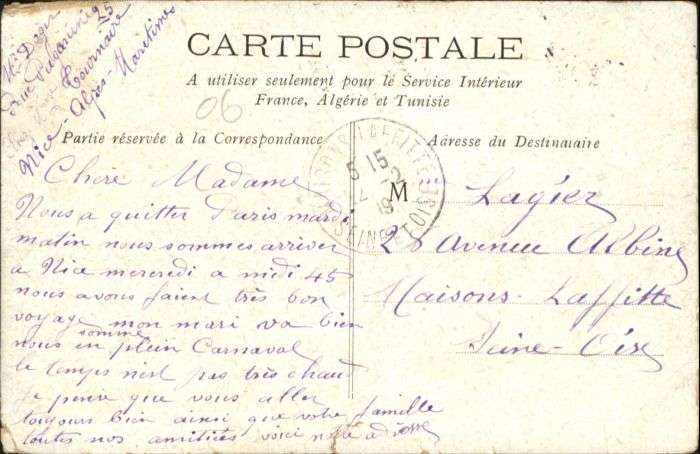 Mme
rue Paganini 25
Tournaire
Nice - Alpes-Maritimes
CARTE POSTALE
A utiliser seulement pour le Service Intérieur
France, Algérie et Tunisie
06
Partie réservée à la Correspondance
Adresse du Destinataire
SEINE ET OISE
Chère Madame
Nous a quitter Paris mardi
matin nous sommes arriver
a Nice mercredi a midi 45
nous avous faient très bon
voyage mon mari va bien
nous somme en plein Carnaval
le temps n'est pas très chaud
Je pense que vous aller
toujours bien ainsi que votre famille
toutes nos amitiées voici notre adresse
M Lagier
28 Avenue Albine
Maisons-Laffitte
Seine-Oise